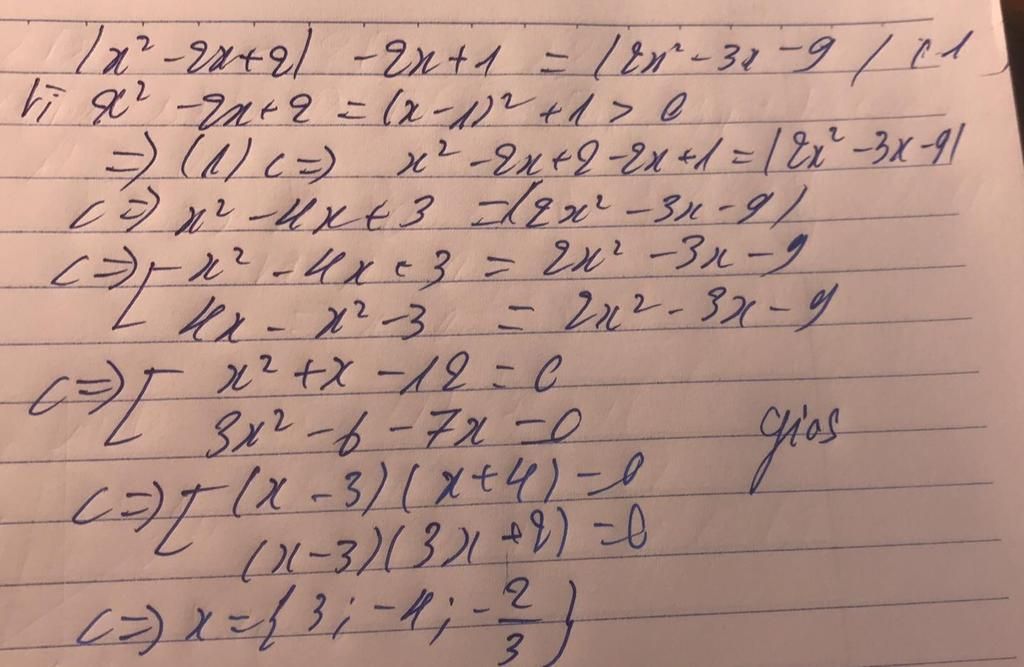 |x² - 2x+2| - 2x+1 = |2x² - 3x - 9| (1)
Vì x² - 2x+2 = (x-1)² +1 > 0
=> (1) <=> x² - 2x+2 - 2x+1 = |2x² - 3x - 9|
<=> x² - 4x + 3 = |2x² - 3x - 9|
<=> [ x² - 4x + 3 = 2x² - 3x - 9
4x - x² - 3 = 2x² - 3x - 9
<=> [ x² + x - 12 = 0
3x² - 6 - 7x = 0
<=> [ (x - 3)(x+4) = 0
(x-3)(3x+2) = 0
<=> x = {3; -4; -2/3}